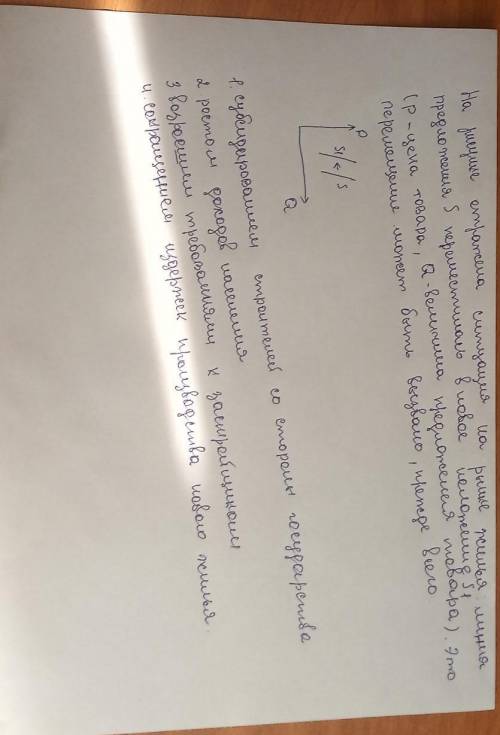 На рисунке отражена ситуация на рынке жилья: линия
предложения S переместилась в новое положение S1
(P - цена товара, Q - величина предложения товара). Это
перемещение может быть вызвано, прежде всего
P
S1 ← S
Q
1. субсидированием строителей со стороны государства
2 ростом доходов населения
3 возросшими требованиями к застройщикам
4. сокращением издержек производства нового жилья.